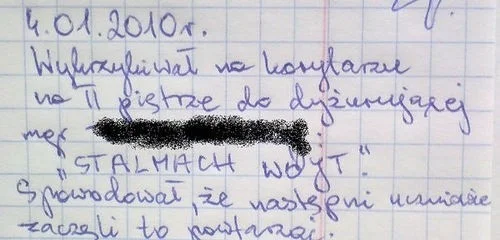 4.01.2010r.
Wykrzykiwał na korytarzu
na II piętrze do dyżurującej
mgr
"STALMACH WÓJT".
Spowodował, że następni uczniowie
zaczęli to powtarzać.